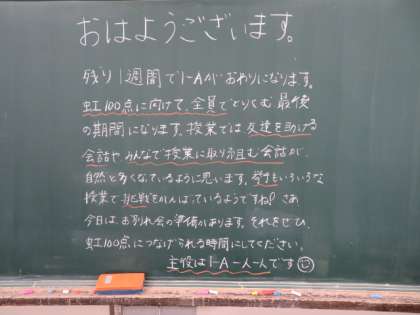 おはようございます。
残り1週間で1-Aがおわりになります。
虹100点に向けて、全員でとりくむ最後
の期間になります。授業では友達を助ける
会話や、みんなで授業に取り組む会話が、
自然と多くなっているように思います。発言もいろいろな
授業で挑戦をがんばっているようですね！さあ
今日はお別れ会の準備があります。それをぜひ、
虹100点につなげられる時間にしてください。
主役は1-A一人一人です